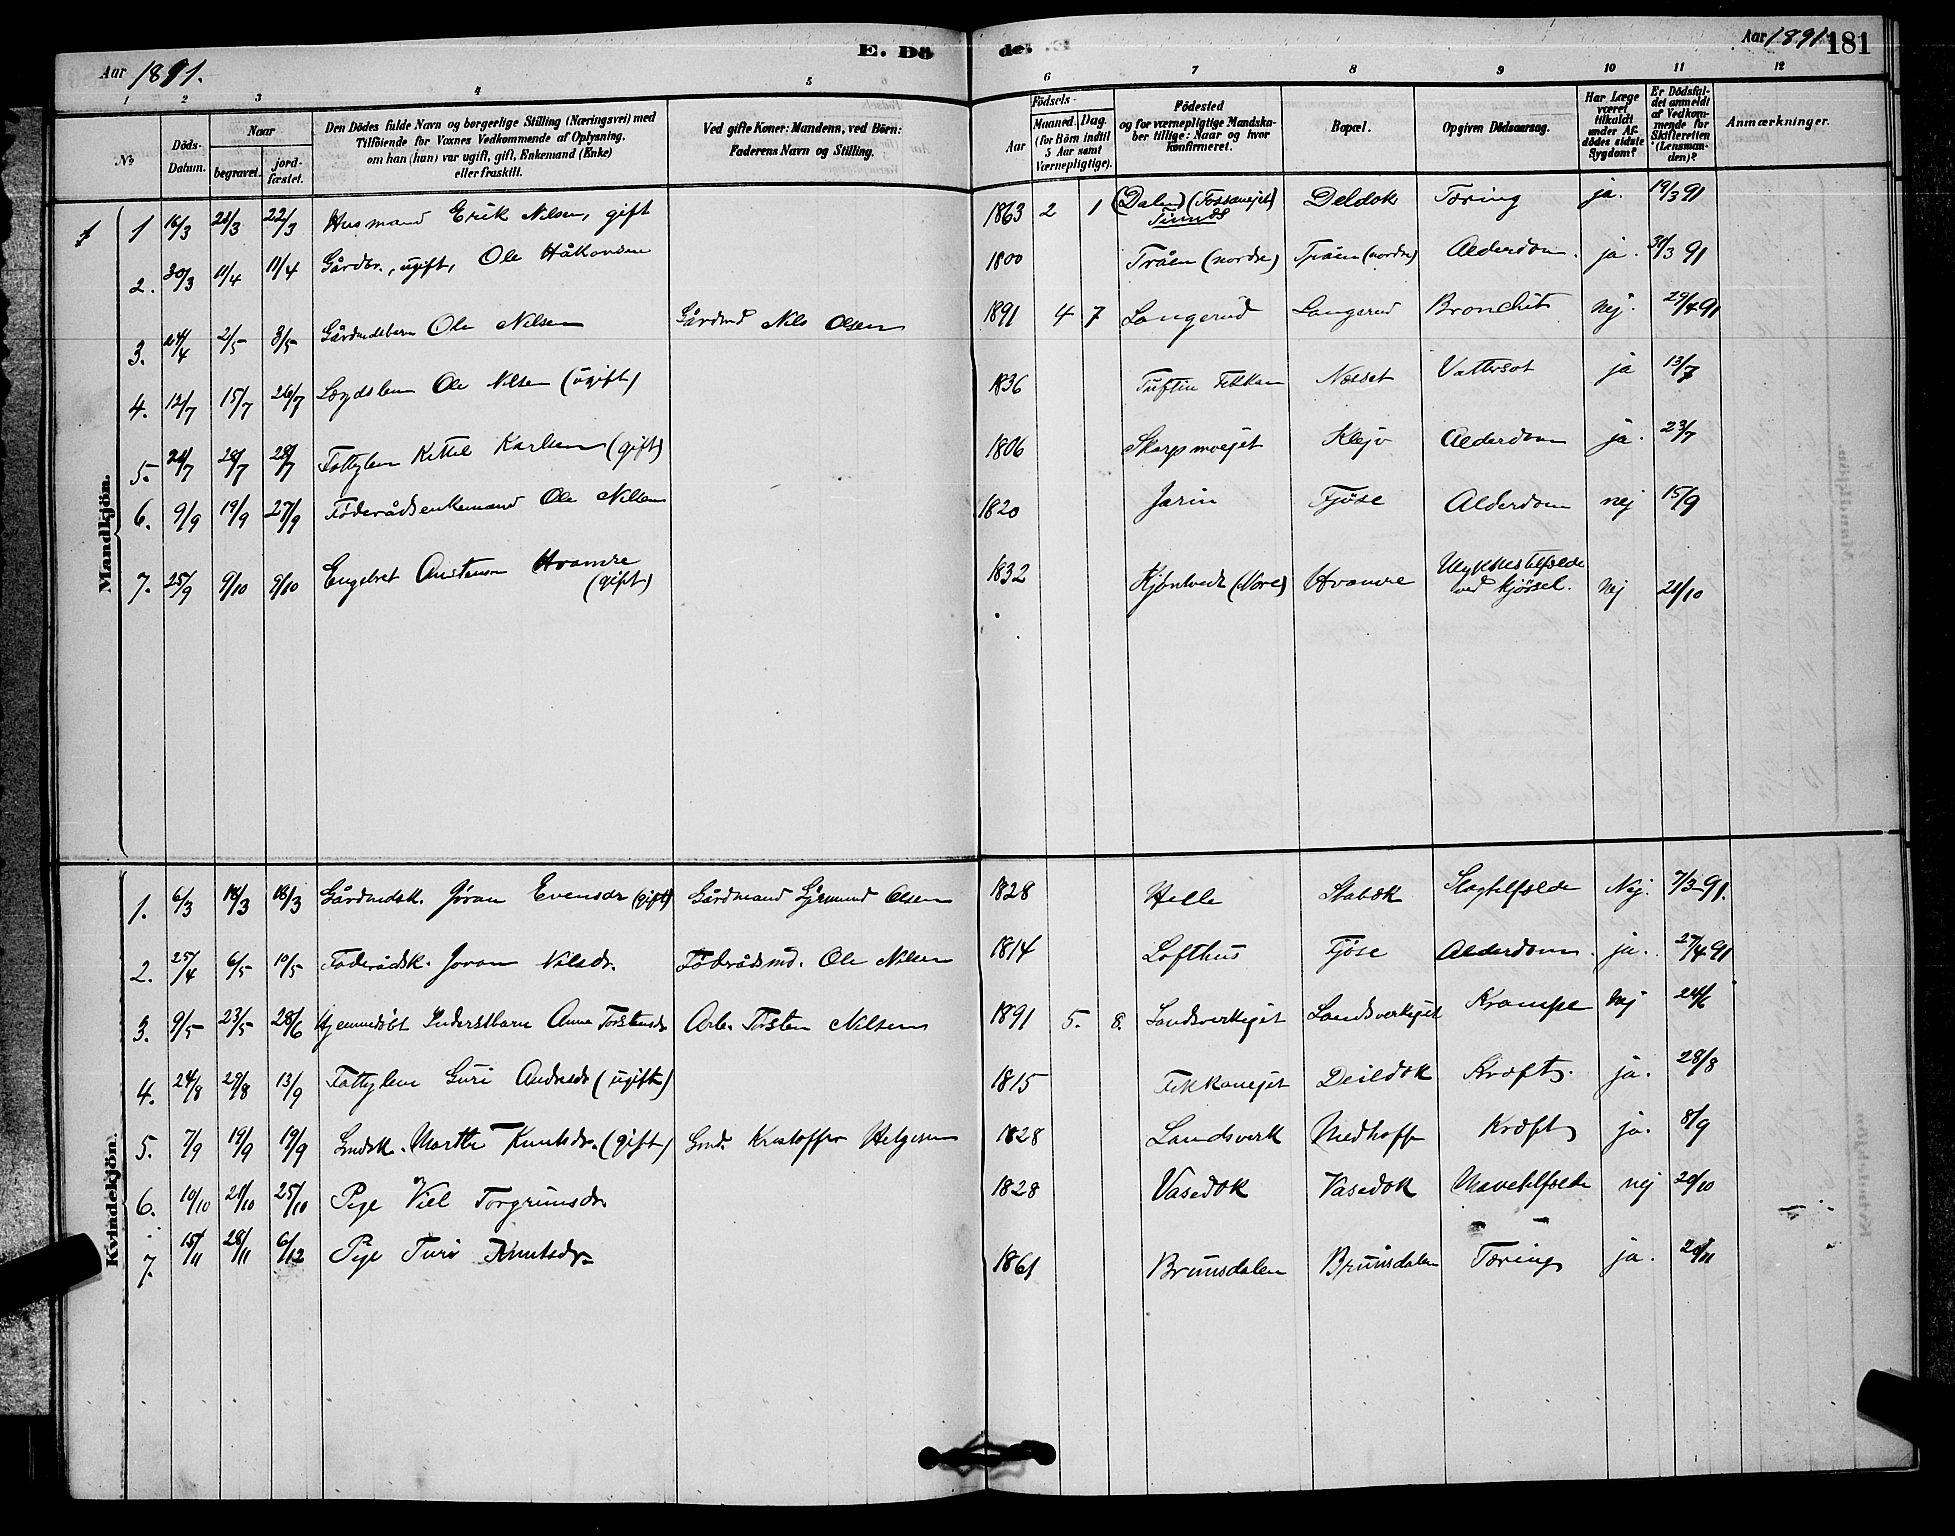 E. Döde.
Aar 1891.
Aar 1891
181
1 2 3 4 5 6 7 8 9 10 11 12
No
Döds-Datum.
Naar
begravet.
jordfæstet.
Den Dödes fulde Navn og borgerlige Stilling (Næringsvei) med
Tilföiende for Voxnes Vedkommende af Oplysning,
om han (hun) var ugift, gift, Enkemand (Enke)
eller fraskilt.
Ved gifte Koner: Mandens, ved Börn:
Faderens Navn og Stilling.
Födsels-
Aar
Maaned. Dag.
(for Börn indtil
5 Aar samt
Værnepligtige).
Födested
og for værnepligtige Mandska-
ber tillige: Naar og hvor
konfirmeret.
Bopæl.
Opgiven Dödsaarsag.
Har Læge
været
tilkaldt
under Af-
dödes sidste
Sygdom?
Er Dödsfal-
det anmeldt
af Vedkom-
mende for
Skifteretten
(Lensman-
den)?
Anmærkninger.
Mandkjön.
1 16/3 21/3 22/3 Husmand Erik Nilsen, gift 1863 2 1 (Dalen) (Fossaneiet) Tinnds Deldok Tæring ja. 19/3 91
2. 30/3 11/4 11/4 Gårdbr., ugift, Ole Håkonsen 1800 Tråen (nordre) Tråen (nordre) Alderdom. ja. 31/3 91
3. 24/4 2/5 3/5 Gårdmdsbarn Ole Nilsen Gårdmd Nils Olsen 1891 4 7 Langerud Langerud Bronchit nej. 29/4 91
4. 12/7 15/7 26/7 Lægdslem Ole Nilsen (ugift) 1836 Tuftin Tekkan Næsset Vattersot ja 13/7
5. 21/7 28/7 28/7 Fattiglem Kittil Karlsen (gift) 1806 Skarpmoejet Klejv Alderdom ja. 23/7
6. 9/9 19/9 27/9 Föderådsenkemand Ole Nilsen 1820 Jarin Fjöse Alderdom nej 15/9
7. 25/9 9/10 9/10 Engebret Anstensen Hvamre (gift) 1832 Kjöntvedt (Nore) Hvamre Ulykkestilfælde ved kjörsel. Nej 21/10
Kvindekjön.
1. 6/3 18/3 18/3 Gårdmdsk. Jöran Evensdr (gift) Gårdmand Gjermund Olsen 1828 Helle Stabæk Slagtilfælde Nej. 7/3 91.
2. 25/4 6/5 10/5 Föderådsk. Joran Nilsdr. Föderådsmd. Ole Nilsen 1814 Lofthus Fjöse Alderdom. ja. 27/4 91
3. 9/5 23/5 28/6 Hjemmedöbt Inderstbarn Anne Torstensdr Arb. Torsten Nilsen 1891 5. 8. Landsverkejet Landsverkejet Krampe Nej 24/6
4. 24/8 29/8 13/9 Fattiglem Guri Andredr (ugift) 1815 Tekkanejet Deildok Kræft. ja. 28/8
5. 7/9 19/9 19/9 Gmdsk. Marthe Knutsdr. (gift) Gmd. Kristoffer Helgesen 1828 Landsverk Medhoff Kræft ja. 8/9
6. 10/10 21/10 25/10 Pige Viel Torgrimsdr 1828 Vasedok Vasedok Mavetilfælde nej 20/10
7. 15/11 28/11 6/12 Pige Turi Knutsdr. 1861 Brunsdalen Brunsdalen Tæring ja. 20/11